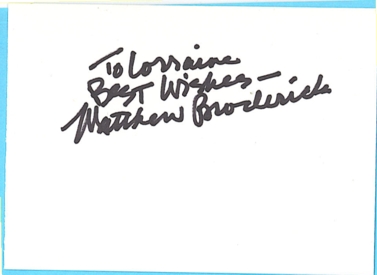 To Lorraine
Best Wishes —
Matthew Broderick